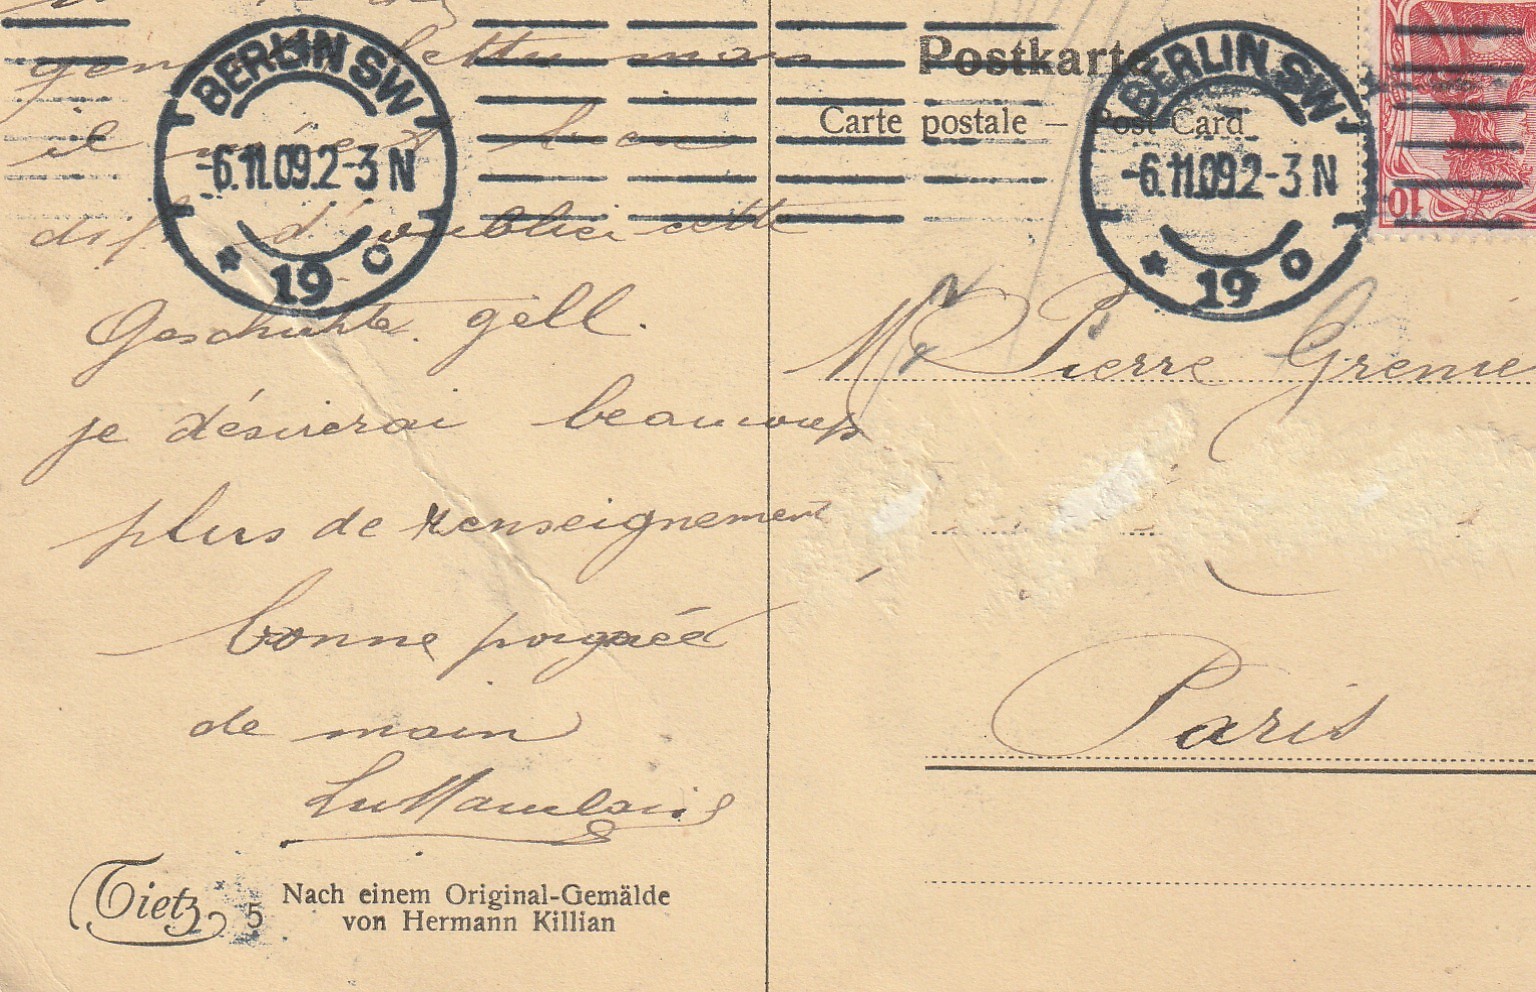 cette mais
il m'est bien
d'oublier cette
Geschichte gell.
je désirerai beaucoup
plus de renseignement
bonne poignée
de main
Tietz 5
Nach einem Original-Gemälde
von Hermann Killian
BERLIN SW
-6.11.09.2-3N
* 19 c
Postkarte
Carte postale – Post Card
BERLIN SW
-6.11.09.2-3N
* 19 o
10
Mr Pierre Grenie
Paris